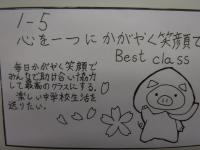 1-5
心を一つに かがやく笑顔で
Best class
毎日かがやく笑顔で
みんなで助け合い協力
して最高のクラスにする。
楽しい中学校生活を
送りたい。